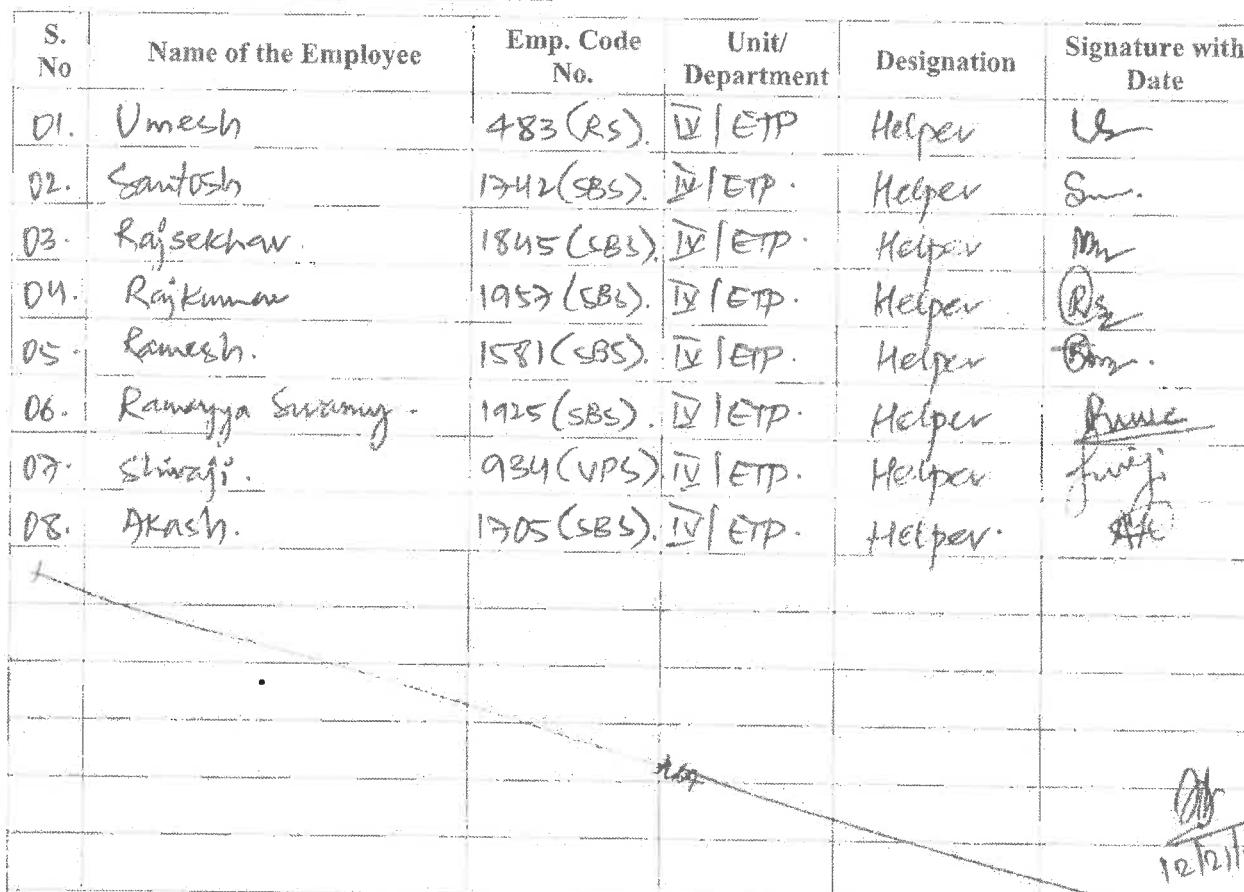 S. No Name of the Employee Emp. Code No. Unit/ Department Designation Signature with Date
01. Umesh 483 (RS). IV / ETP Helper
02. Santosh 1742 (SBS). IV / ETP. Helper
03. Rajsekhar. 1845 (SBS). IV / ETP. Helper
04. Rajkumar 1957 (SBS). IV / ETP. Helper
05. Ramesh. 1581 (SBS). IV / ETP. Helper
06. Ramayya Swamy. 1925 (SBS). IV / ETP. Helper
07. Shivaji. 934 (VPS). IV / ETP. Helper
08. Akash. 1705 (SBS). IV / ETP. Helper.